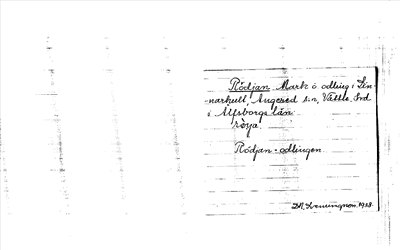 Rödjan. Mark o. odling i Lin-
narhult, Angered s:n, Vättle hd
i Älfsborgs län.
röja.
Rödjan - odlingen.
D.A. Hemmingson. 1928.